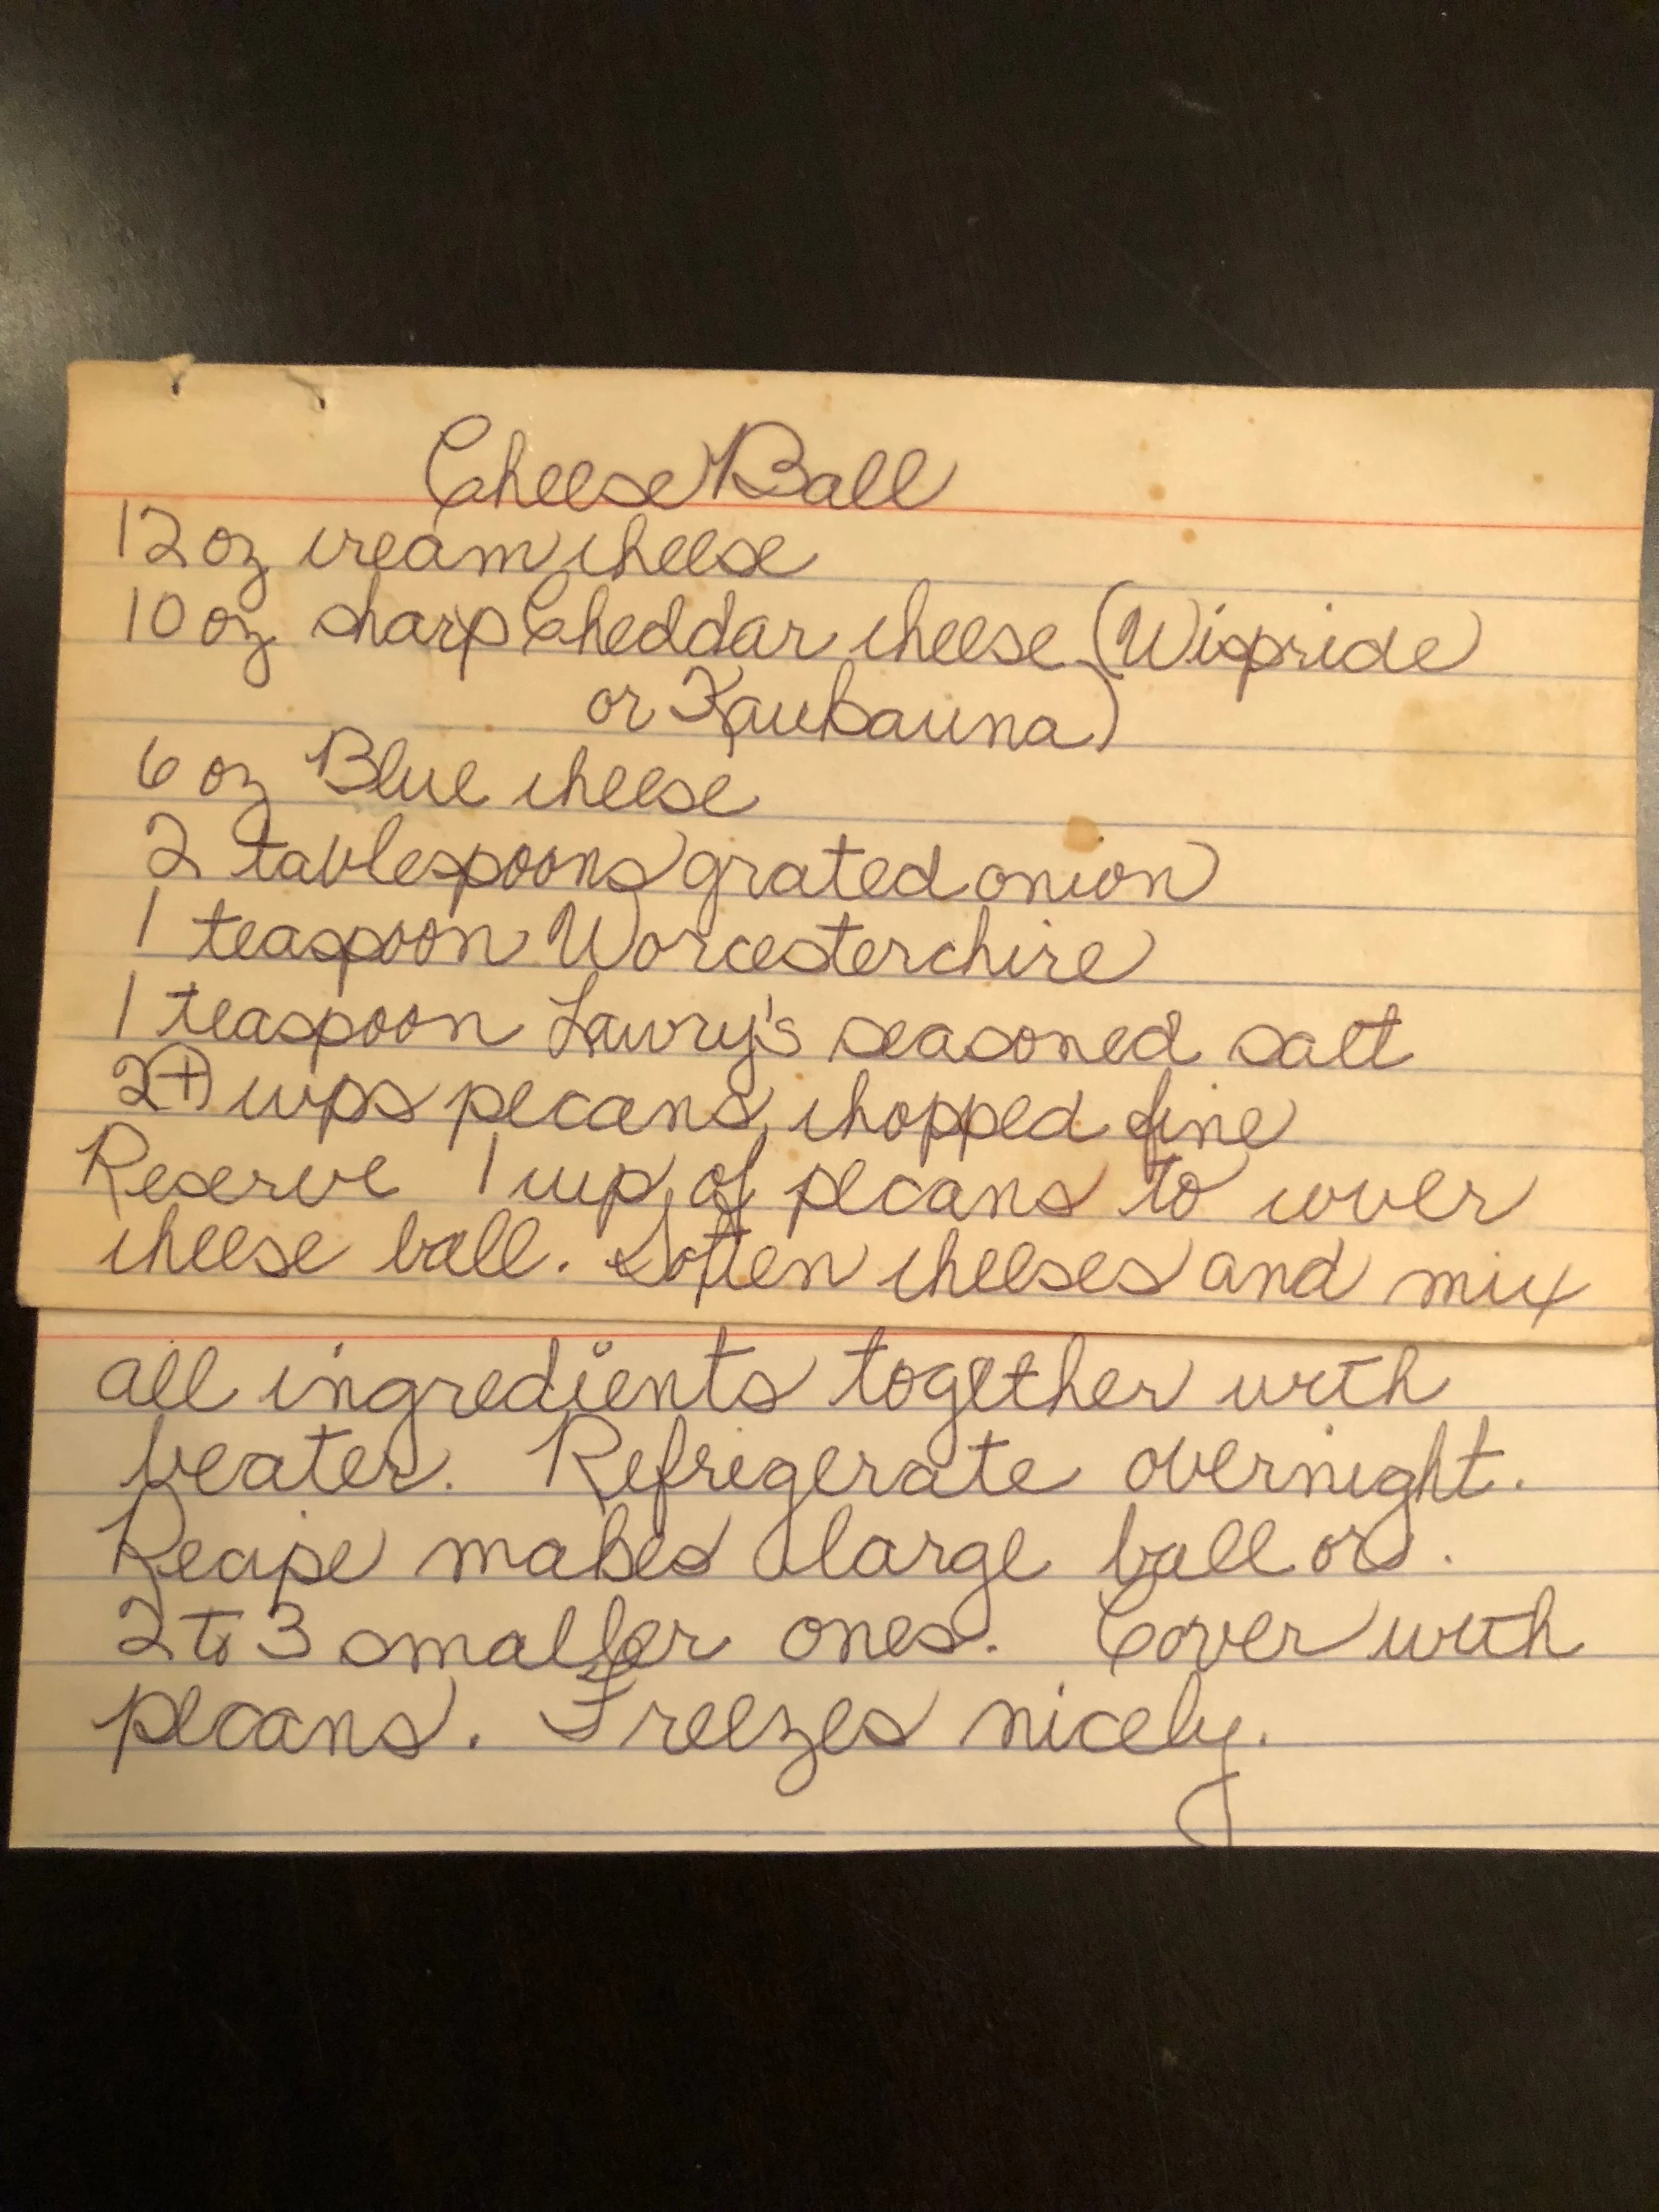 Cheese Ball
12 oz cream cheese
10 oz sharp Cheddar cheese (Wispride
or Kaukauna)
6 oz Blue cheese
2 tablespoons grated onion
1 teaspoon Worcesterchire
1 teaspoon Lawry's seasoned salt
2+ cups pecans, chopped fine
Reserve 1 cup of pecans to cover
cheese ball. Soften cheeses and mix
all ingredients together with
beater. Refrigerate overnight.
Recipe makes 1 large ball or
2 to 3 smaller ones. Cover with
pecans. Freezes nicely.